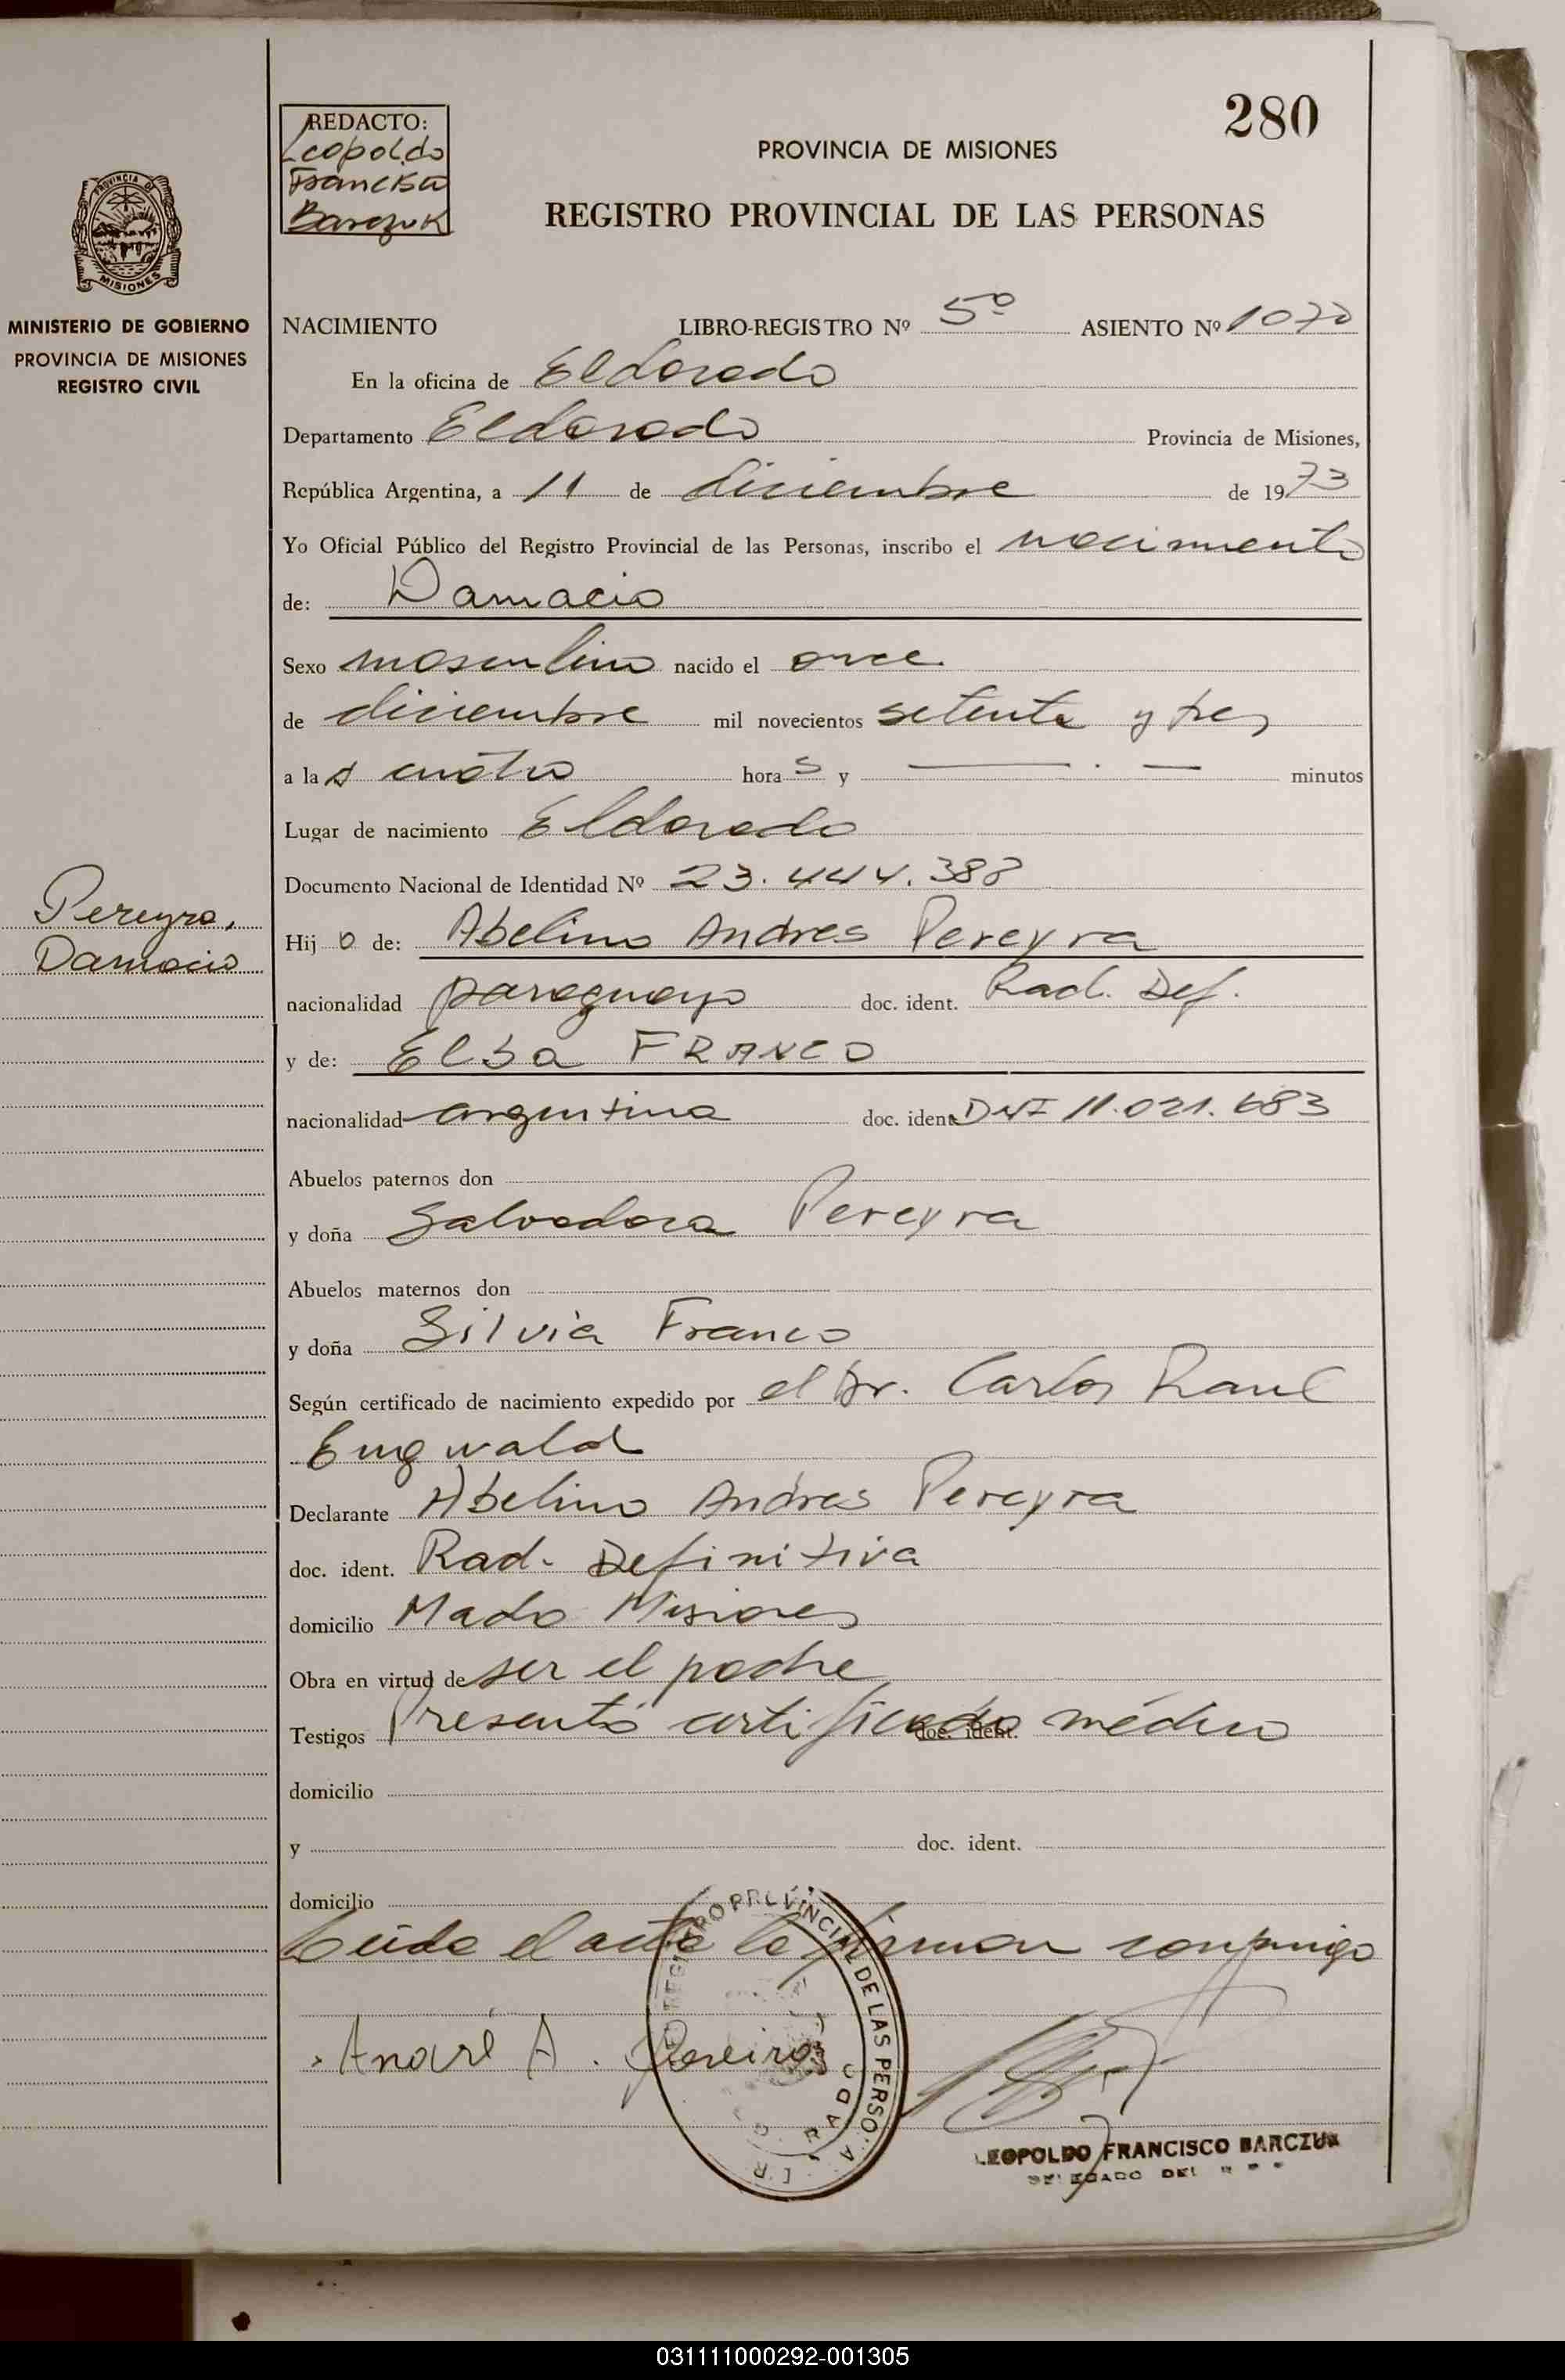 280
REDACTO:
Leopoldo
Francisco
Barczuk
PROVINCIA DE MISIONES
REGISTRO PROVINCIAL DE LAS PERSONAS
PROVINCIA DE
MISIONES
MINISTERIO DE GOBIERNO
PROVINCIA DE MISIONES
REGISTRO CIVIL
NACIMIENTO LIBRO-REGISTRO Nº 5º ASIENTO Nº 1070
En la oficina de Eldorado
Departamento Eldorado Provincia de Misiones,
República Argentina, a 11 de diciembre de 1973
Yo Oficial Público del Registro Provincial de las Personas, inscribo el nacimiento
de: Damacio
Sexo masculino nacido el once
de diciembre mil novecientos setenta y tres
a las cuatro horas y — . — minutos
Lugar de nacimiento Eldorado
Documento Nacional de Identidad Nº 23.444.388
Pereyra,
Damacio
Hijo de: Abelino Andres Pereyra
nacionalidad paraguayo doc. ident. Rad. Def.
y de: Elsa FRANCO
nacionalidad argentina doc. ident. DNI 11.021.683
Abuelos paternos don
y doña Salvadora Pereyra
Abuelos maternos don
y doña Silvia Franco
Según certificado de nacimiento expedido por el Dr. Carlos Raul
Engwald
Declarante Abelino Andres Pereyra
doc. ident. Rad. Definitiva
domicilio Mado Misiones
Obra en virtud de ser el padre
Testigos Presentó certificado doc. ident. médico
domicilio
y doc. ident.
domicilio
Leída el acta la firman conmigo
REGISTRO PROVINCIAL DE LAS PERSO
André A. Pereira
LEOPOLDO FRANCISCO BARCZUK
DELEGADO DEL
031111000292-001305